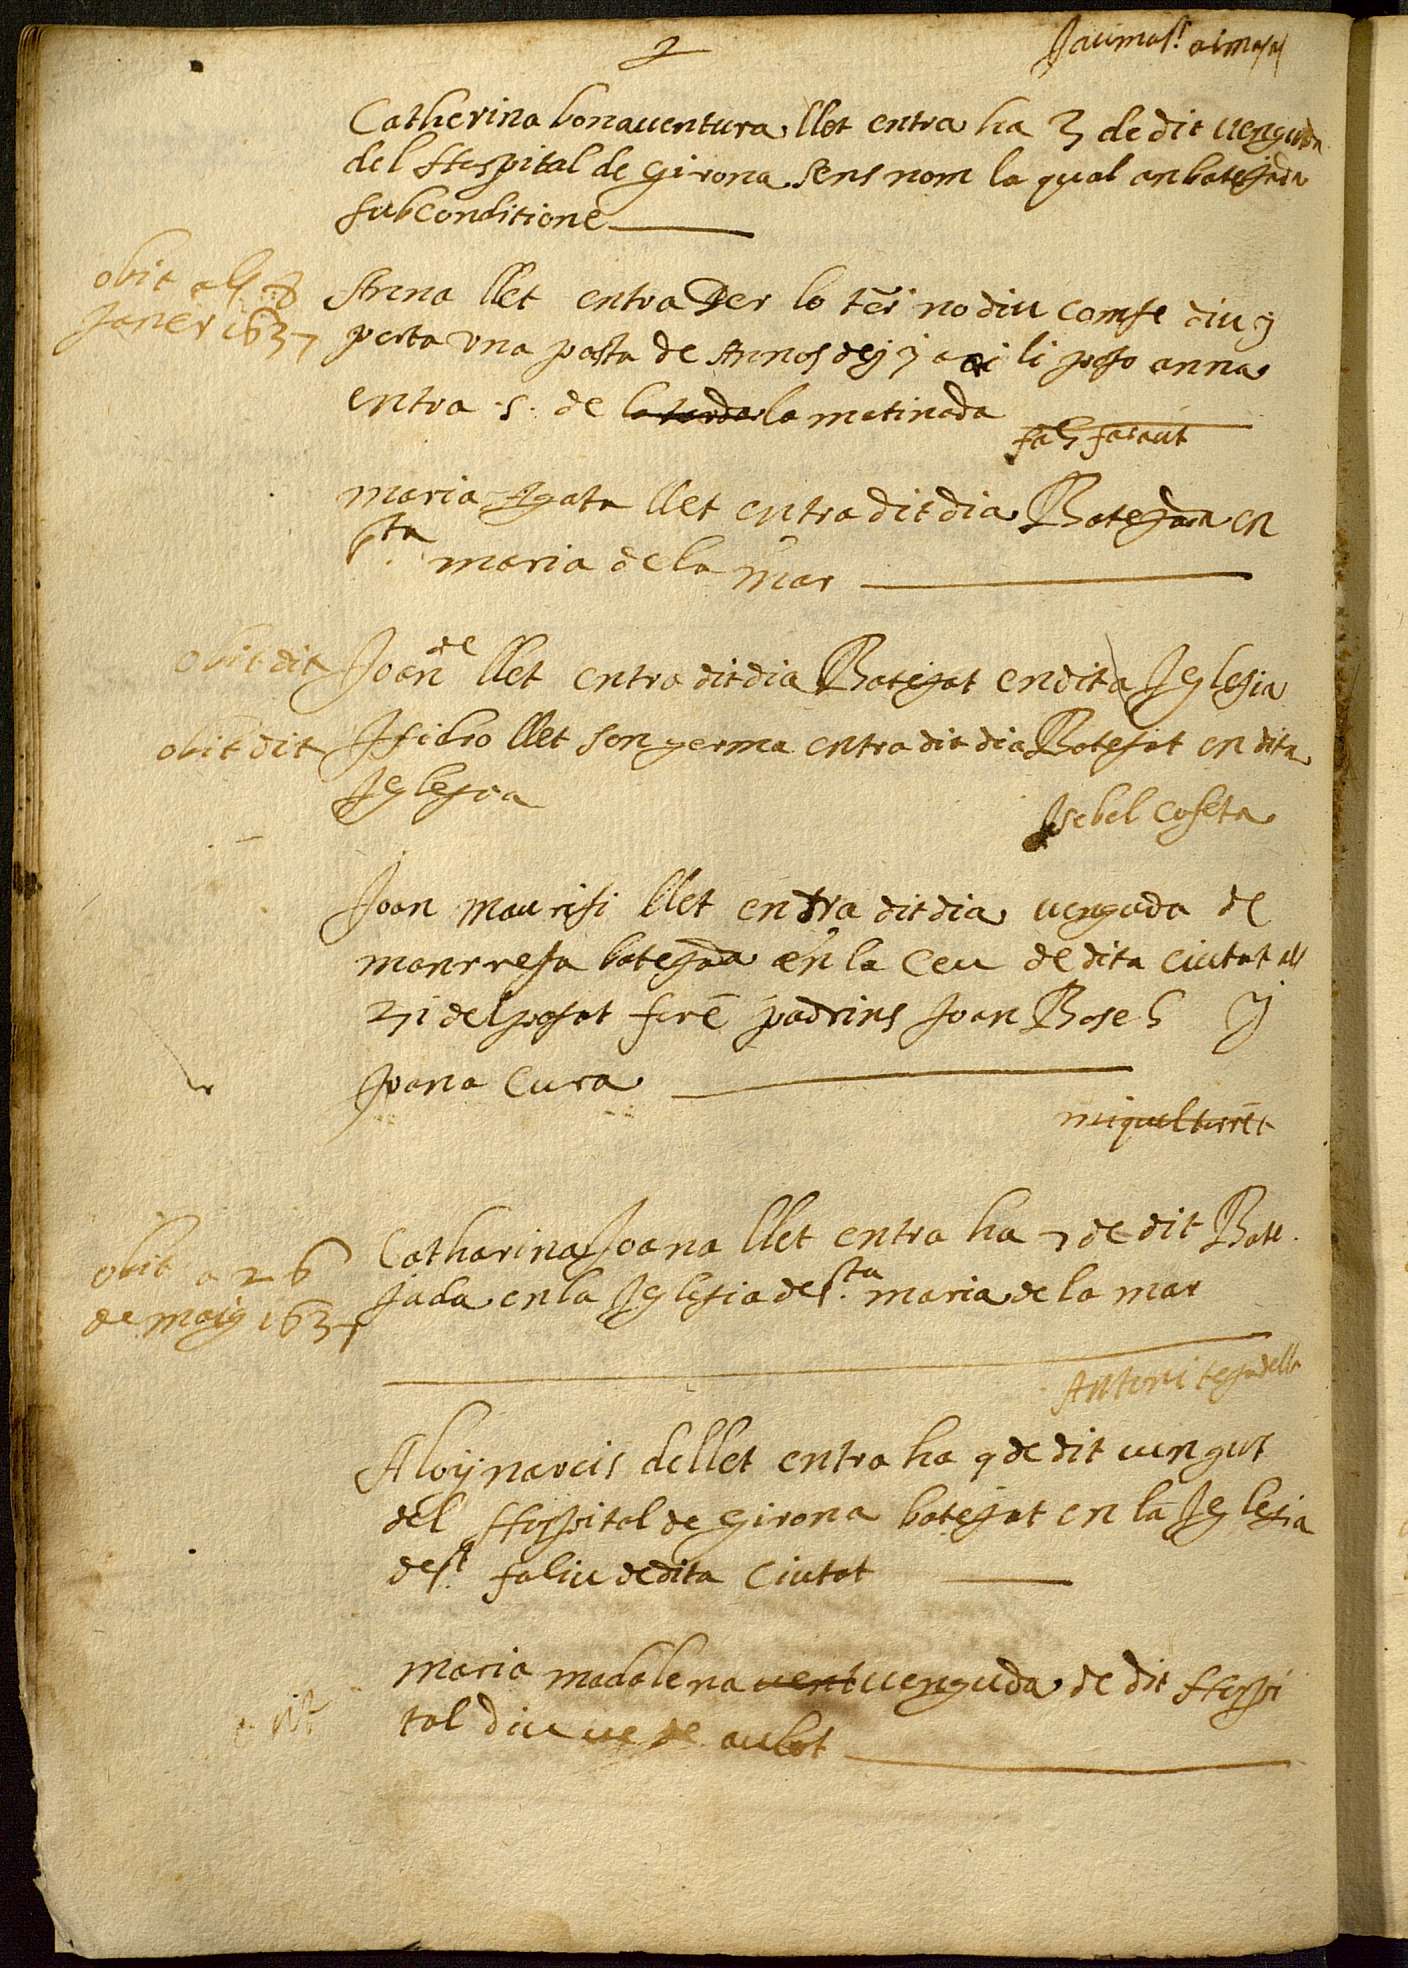 2
Catherina bonauentura llet entra ha 3 de dit uenguda
del Hospital de Girona sens nom la qual an bategada
sub conditione
obit als 8
Janer 1637
Anna llet entra per lo torn no diu com se diu y
porta vna posta de Annos dej y axi li poso anna
entra .5. de la tarda la matinada
maria Agata llet entra dit dia Bategada en
Sta maria de la mar
obit dit
Joan de llet entra dit dia Bategat en dita Iglesia
obit dit
Isidro llet son germa entra dit dia Bategat en dita
Iglesia
Isebel Coseta
Joan maurisi llet entra dit dia uenguda de
manrresa bategada en la Ceu de dita ciutat als
21 del pasat foren padrins Joan Rose y
Joana Cura
miquel torret
obit a 26
de maig 1637
Catharina Joana llet entra ha 7 de dit Bate
jada en la Iglesia de sta. maria de la mar
Antoni
Aloy narcis de llet entra ha 9 de dit uengut
del Hospital de Girona bategat en la Iglesia
de st. faliu de dita Ciutat
maria madalena uent uenguda de dit Hospi
tal diu ue de aulot